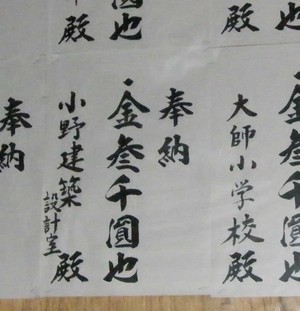 圓也
殿
金叁千圓也
大師小学校殿
奉納
一金叁千圓也
小野建築設計室殿
奉納